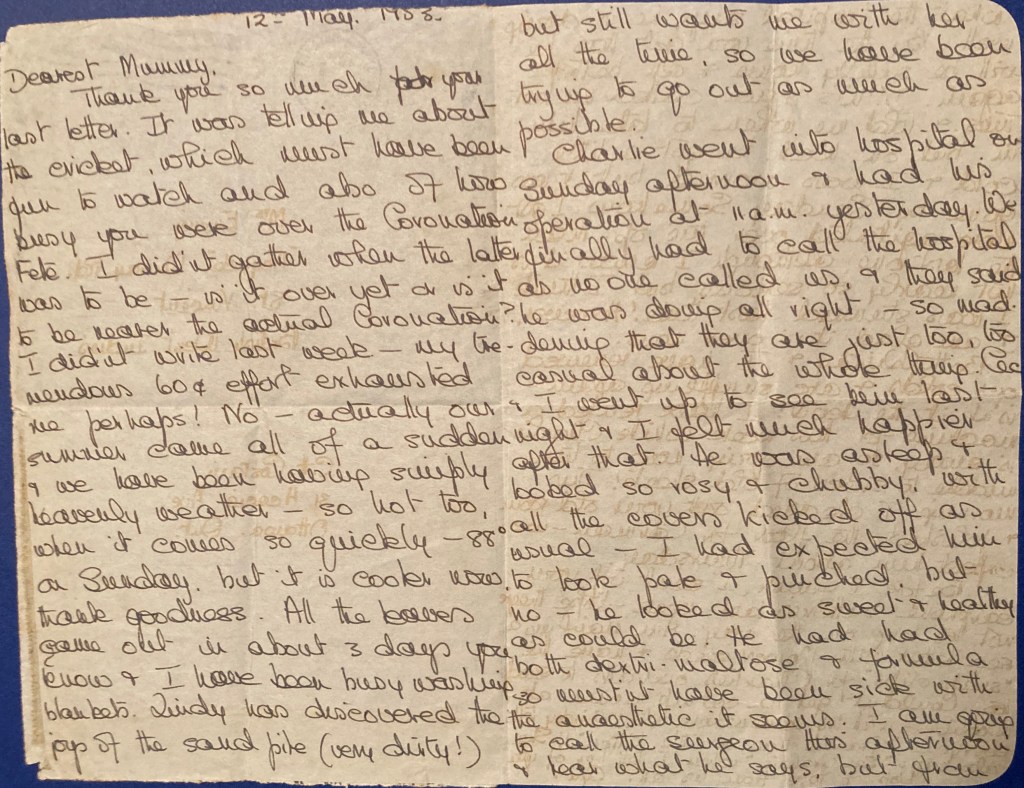 12- May. 1953.
Dearest Mummy,
Thank you so much for your
last letter. It was telling me about
the cricket, which must have been
fun to watch and also of how
busy you were over the Coronation
Fete. I didn't gather when the latter
was to be – is it over yet or is it
to be nearer the actual Coronation?
I didn't write last week – my tre-
mendous 60¢ effort exhausted
me perhaps! No – actually our
summer came all of a sudden
& we have been having simply
heavenly weather – so hot too,
when it comes so quickly – 88°
on Sunday, but it is cooler now
thank goodness. All the leaves
came out in about 3 days you
know & I have been busy washing
blankets. Lindy has discovered the
joys of the sand pile (very dirty!)
but still wants me with her
all the time, so we have been
trying to go out as much as
possible.
Charlie went into hospital on
Sunday afternoon & had his
operation at 11 a.m. yesterday. We
finally had to call the hospital
as no one called us, & they said
he was doing all right – so mad-
dening that they are just too, too
casual about the whole thing. Cec
& I went up to see him last
night & I felt much happier
after that. He was asleep &
looked so rosy & chubby, with
all the covers kicked off as
usual – I had expected him
to look pale & pinched, but
no – he looked as sweet & healthy
as could be. He had had
both dextri-maltose & formula
so mustn't have been sick with
the anaesthetic it seems. I am going
to call the surgeon this afternoon
& hear what he says, but from